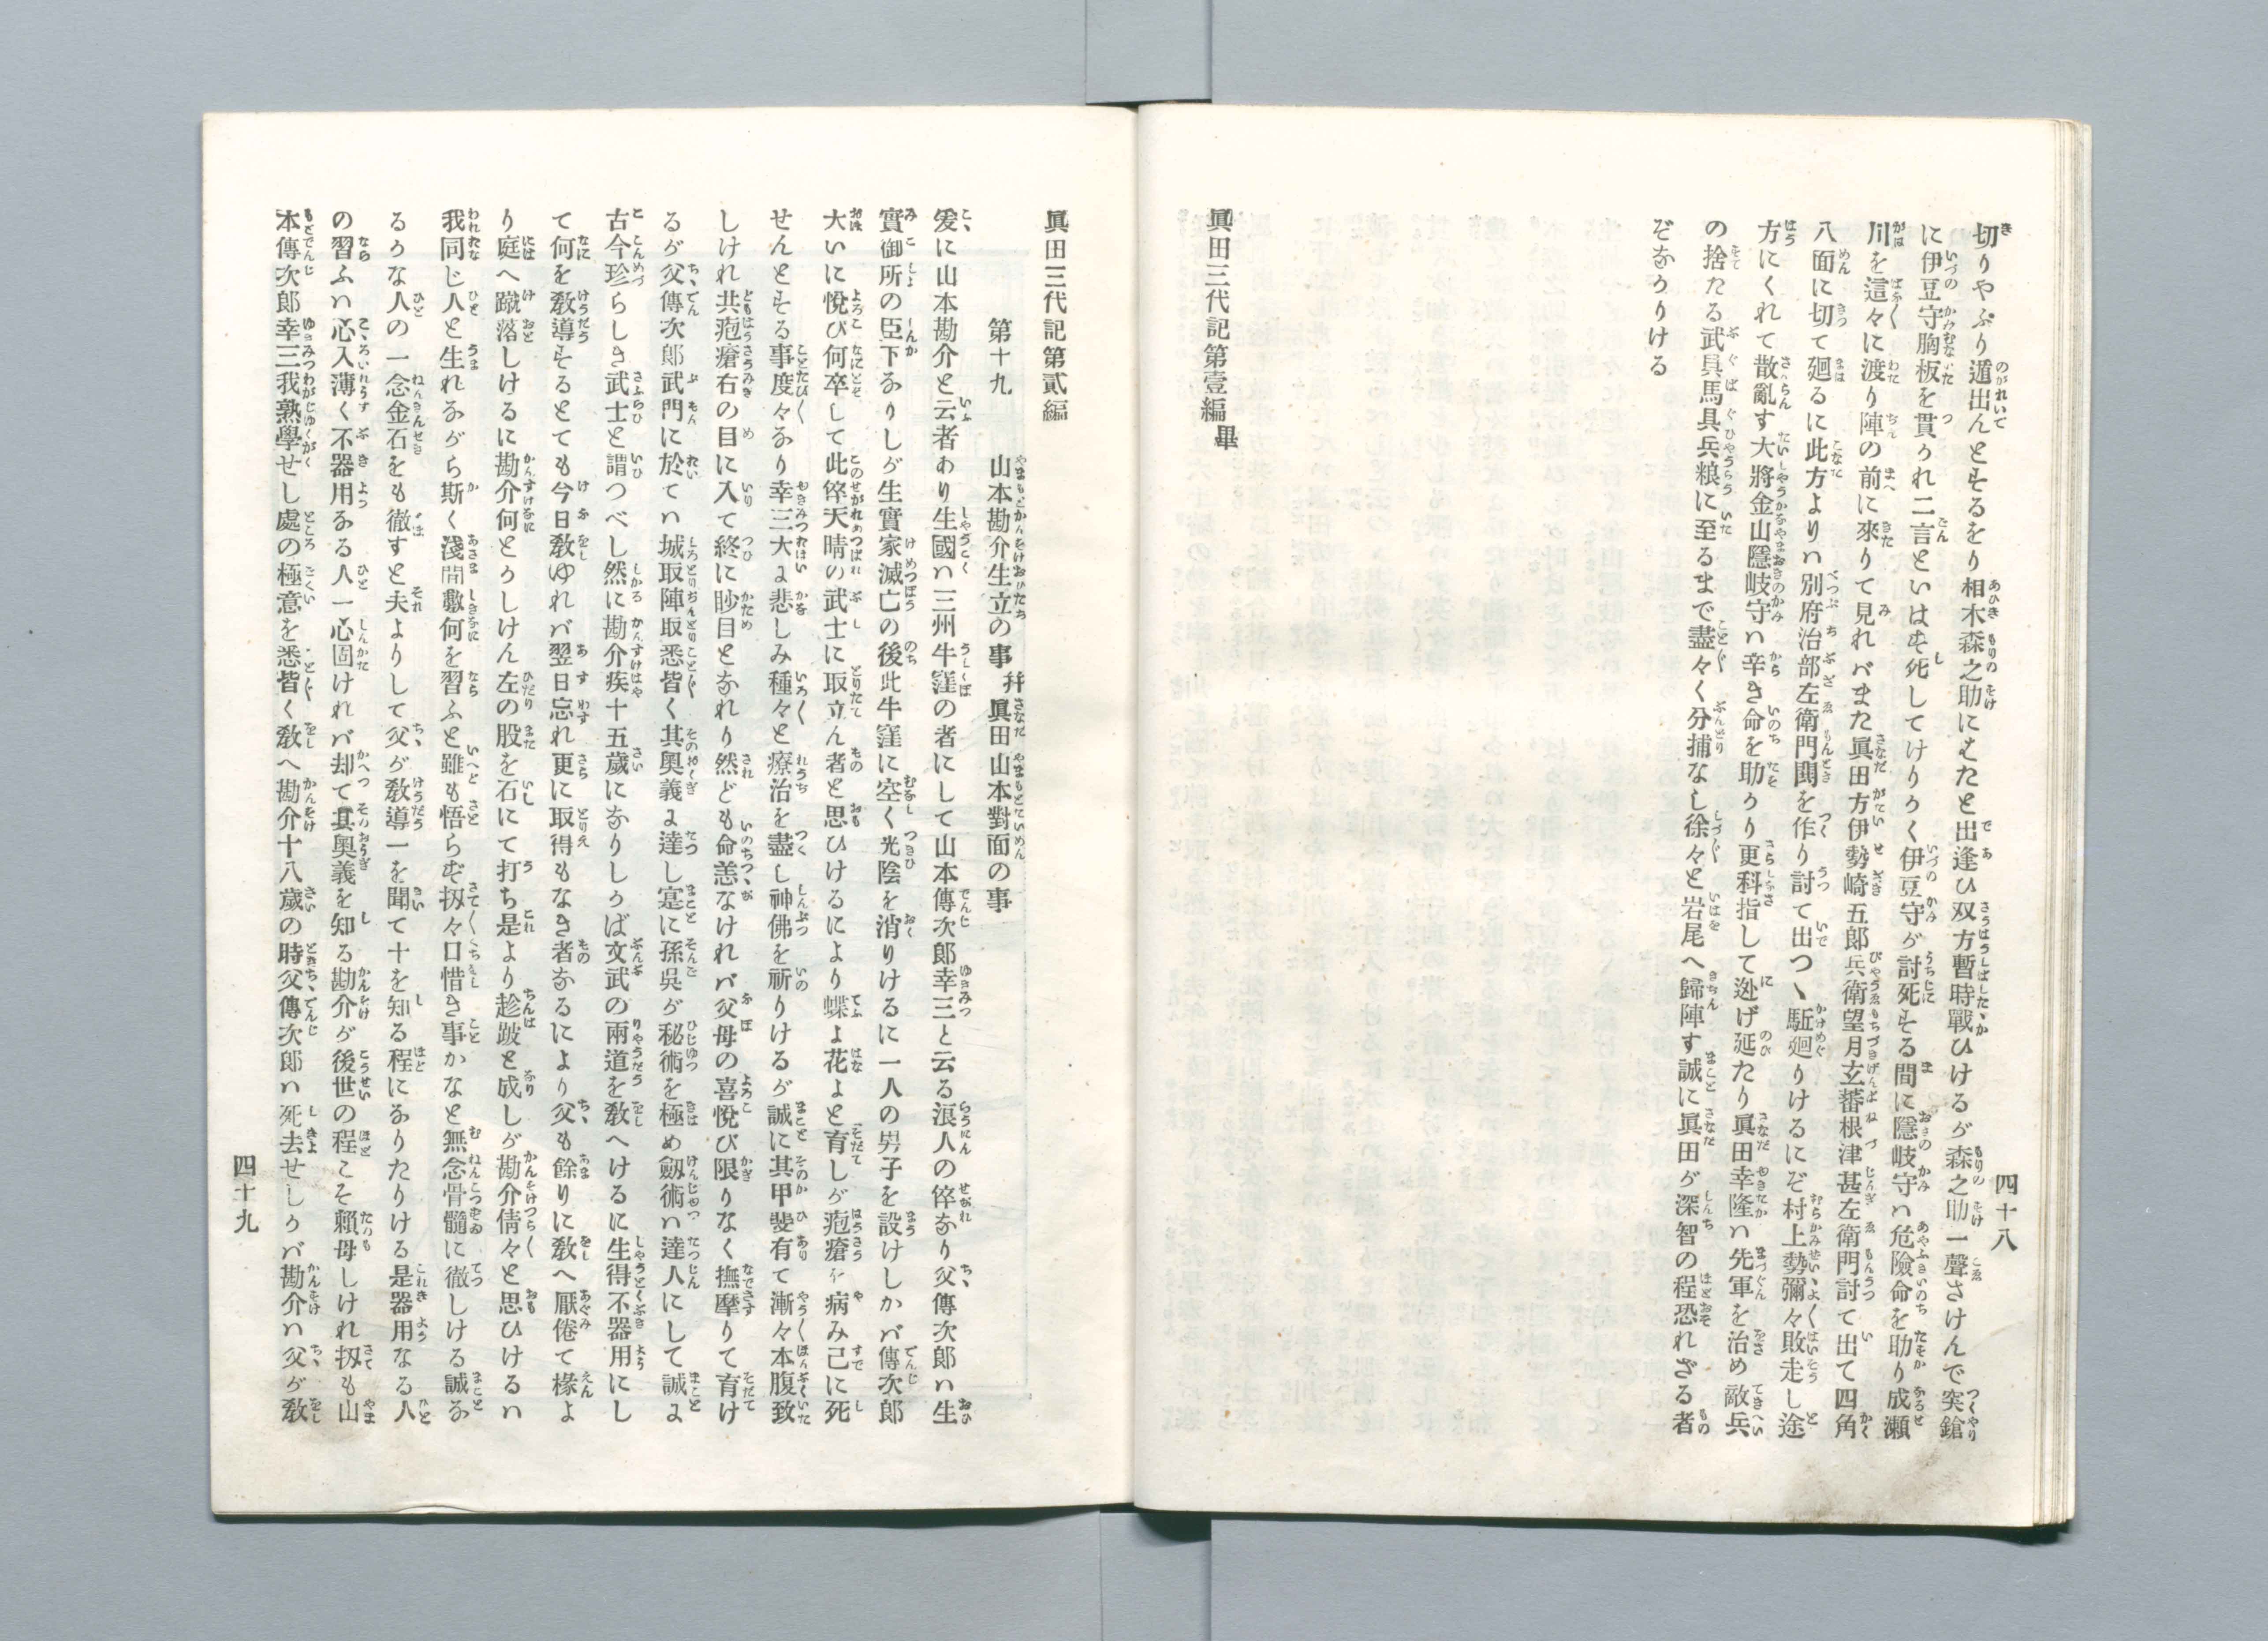 四十八
切りやぶり遁出んとするをり相木森之助にはたと出逢ひ双方暫時戰ひけるが森之助一聲さけんで突鎗
に伊豆守胸板を貫かれ二言といはず死してけりかく伊豆守が討死する間に隱岐守ハ危險命を助り成瀬
川を這々に渡り陣の前に來りて見れバまた眞田方伊勢崎五郎兵衛望月玄蕃根津甚左衛門討て出て四角
八面に切て廻るに此方よりハ別府治部左衛門鬨を作り討て出つゝ駈廻りけるにぞ村上勢彌々敗走し途
方にくれて散亂す大將金山隱岐守ハ辛き命を助かり更科指して迯げ延たり眞田幸隆ハ先軍を治め敵兵
の捨たる武具馬具兵粮に至るまで盡々く分捕なし徐々と岩尾へ歸陣す誠に眞田が深智の程恐れざる者
ぞなかりける
眞田三代記第壹編畢
眞田三代記第貳編
第十九　山本勘介生立の事并眞田山本對面の事
爰に山本勘介と云者あり生國ハ三州牛窪の者にして山本傳次郎幸三と云る浪人の倅なり父傳次郎ハ生
實御所の臣下なりしが生實家滅亡の後此牛窪に空く光陰を消りけるに一人の男子を設けしかバ傳次郎
大いに悅び何卒して此倅天晴の武士に取立ん者と思ひけるにより蝶よ花よと育しが疱瘡を病み己に死
せんとする事度々なり幸三大に悲しみ種々と療治を盡し神佛を祈りけるが誠に其甲斐有て漸々本腹致
しけれ共疱瘡右の目に入て終に眇目となれり然ども命恙なけれバ父母の喜悅び限りなく撫摩りて育け
るが父傳次郎武門に於てハ城取陣取悉皆く其奧義に達し寔に孫呉が秘術を極め劔術ハ達人にして誠に
古今珍らしき武士と謂つべし然に勘介疾十五歲になりしかば文武の兩道を敎へけるに生得不器用にし
て何を敎導するとても今日敎ゆれバ翌日忘れ更に取得もなき者なるにより父も餘りに敎へ厭倦て椽よ
り庭へ蹴落しけるに勘介何とかしけん左の股を石にて打ち是より趁跛と成しが勘介倩々と思ひけるハ
我同じ人と生れながら斯く淺間敷何を習ふと雖も悟らず扨々口惜き事かなと無念骨髓に徹しける誠な
るかな人の一念金石をも徹すと夫よりして父が敎導一を聞て十を知る程になりたりける是器用なる人
の習ふハ心入薄く不器用なる人一心固けれバ却て其奧義を知る勘介が後世の程こそ賴母しけれ扨も山
本傳次郎幸三我熟學せし處の極意を悉皆く敎へ勘介十八歲の時父傳次郎ハ死去せしかバ勘介ハ父が敎
四十九